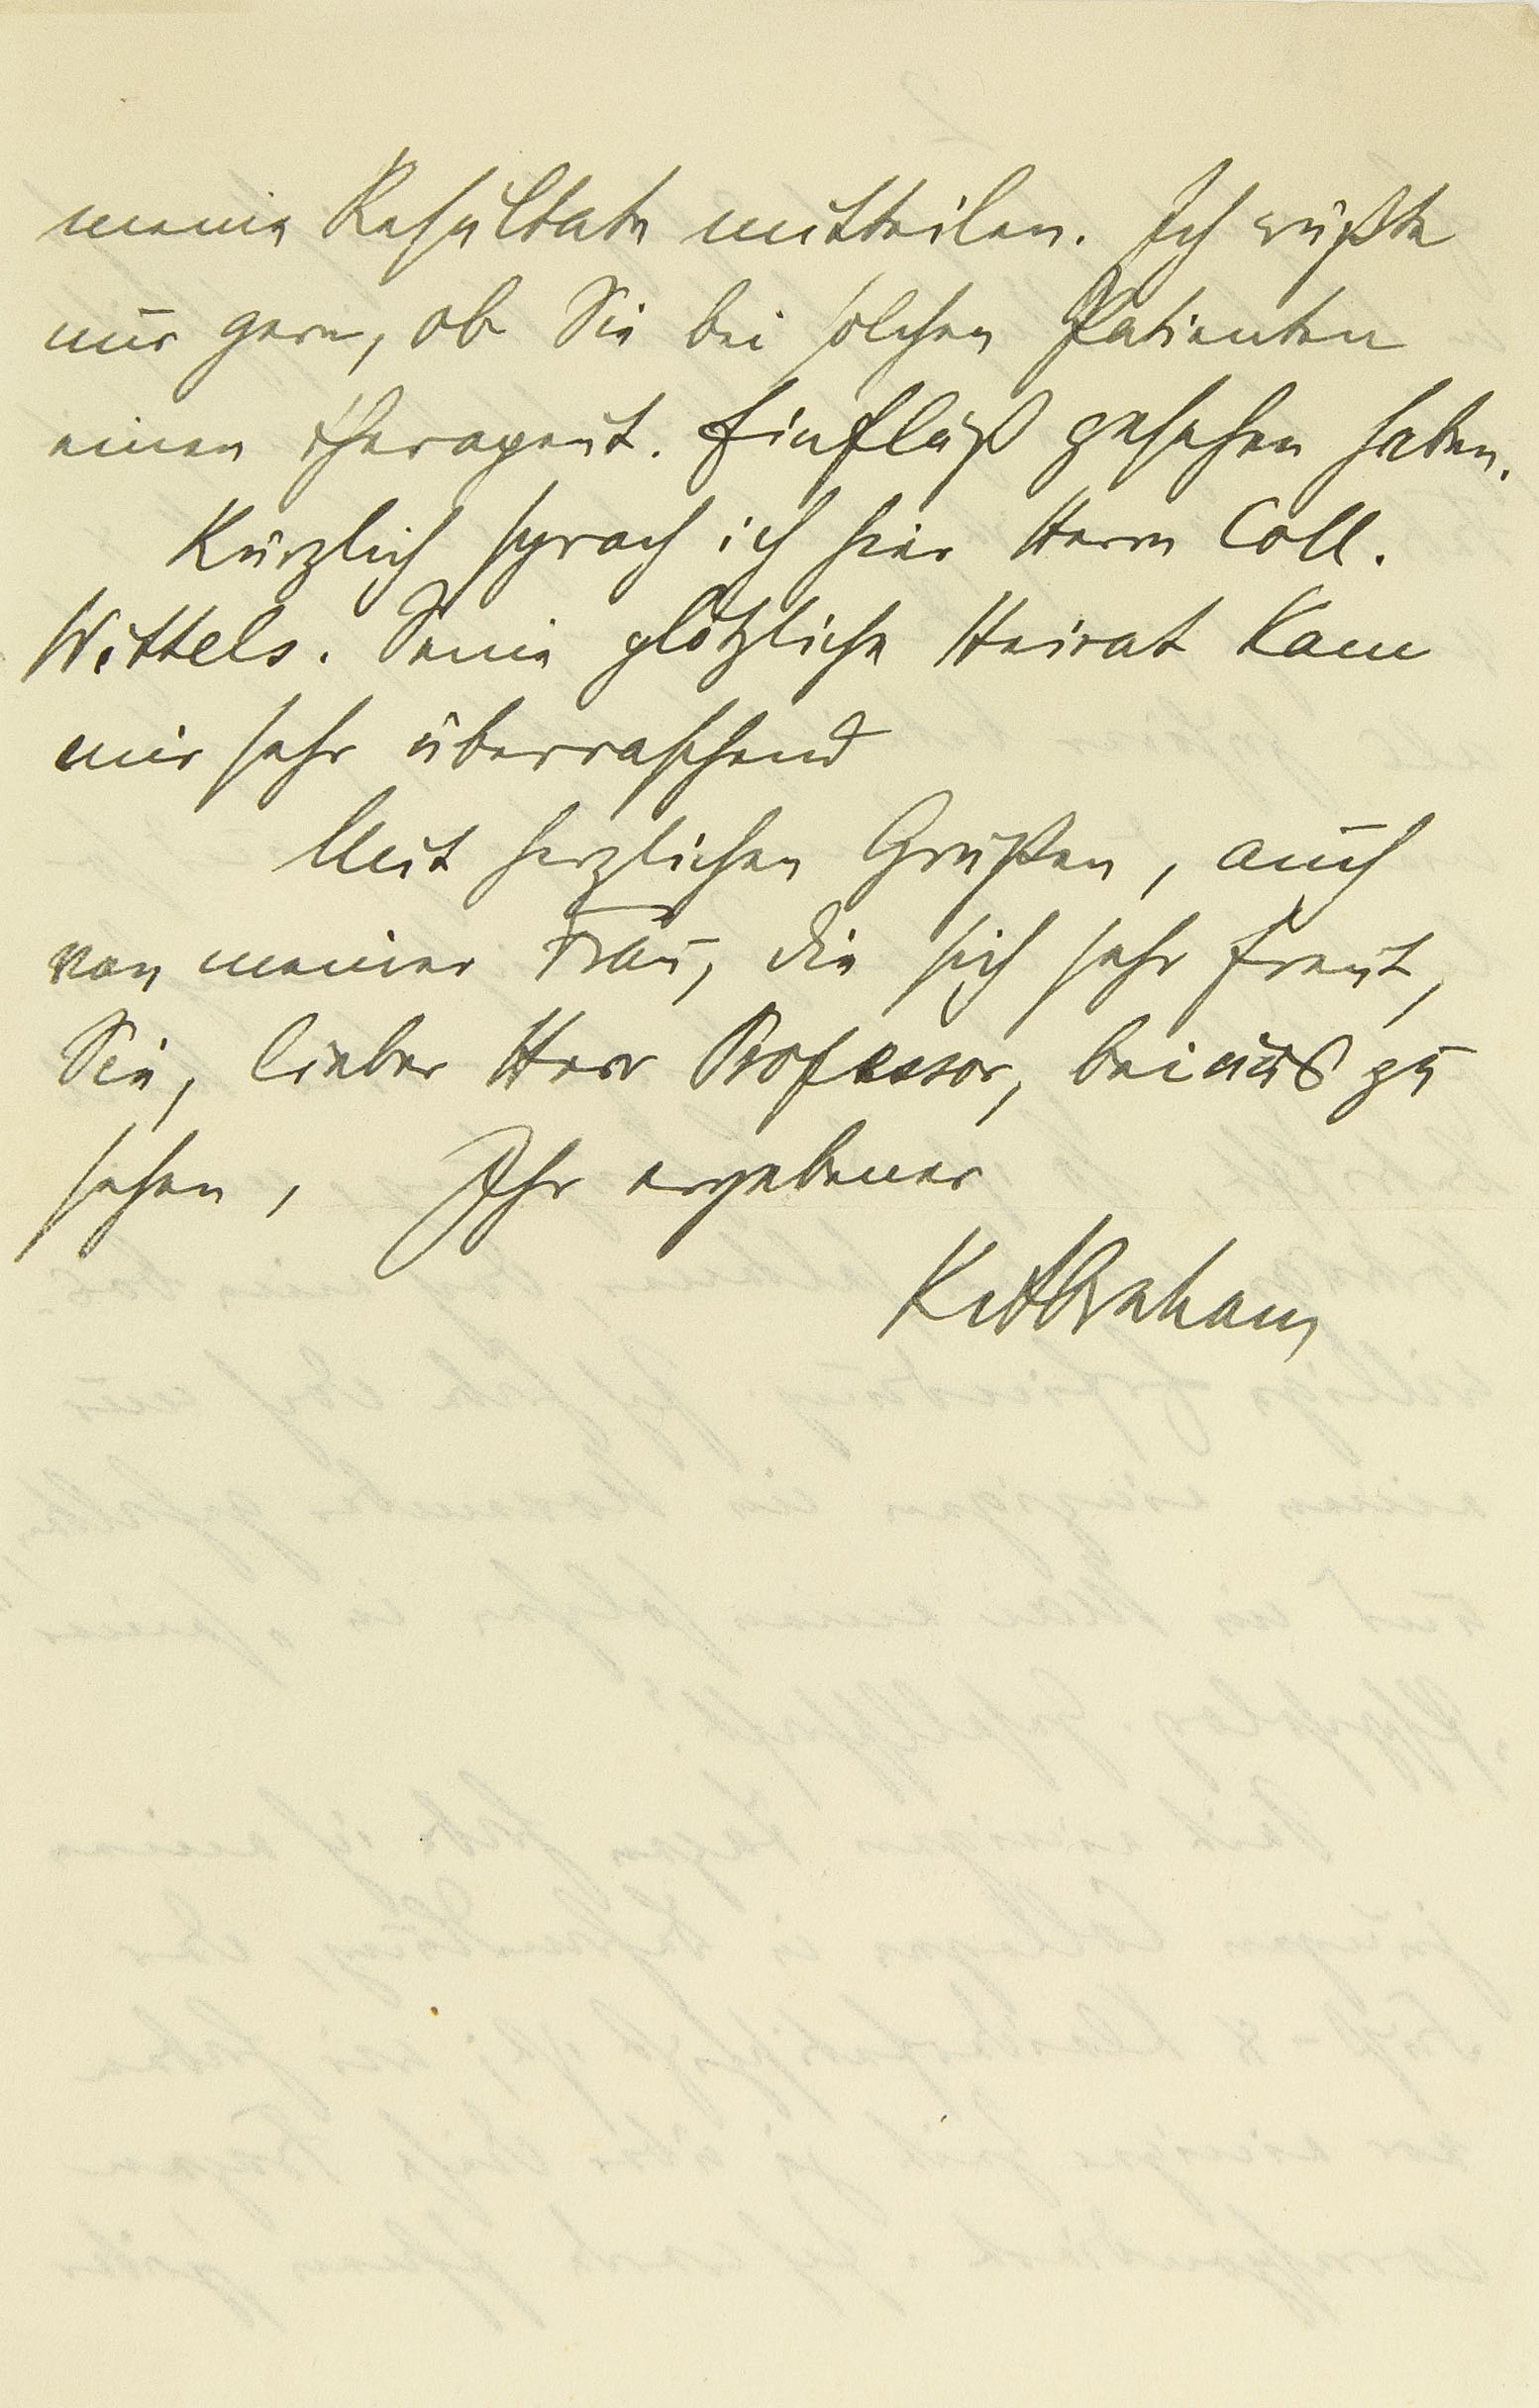 meine Resultate mitteilen. Ich wüßte
nur gern, ob Sie bei solchen Patienten
einen therapeut. Einfluß gesehen haben.
Kürzlich sprach ich hier Herrn Coll.
Wittels. Seine plötzliche Heirat kam
mir sehr überraschend
Mit herzlichen Grüßen, auch
von meiner Frau, die sich sehr freut,
Sie, lieber Herr Professor, bei uns zu
sehen, Ihr ergebener
K. Abraham